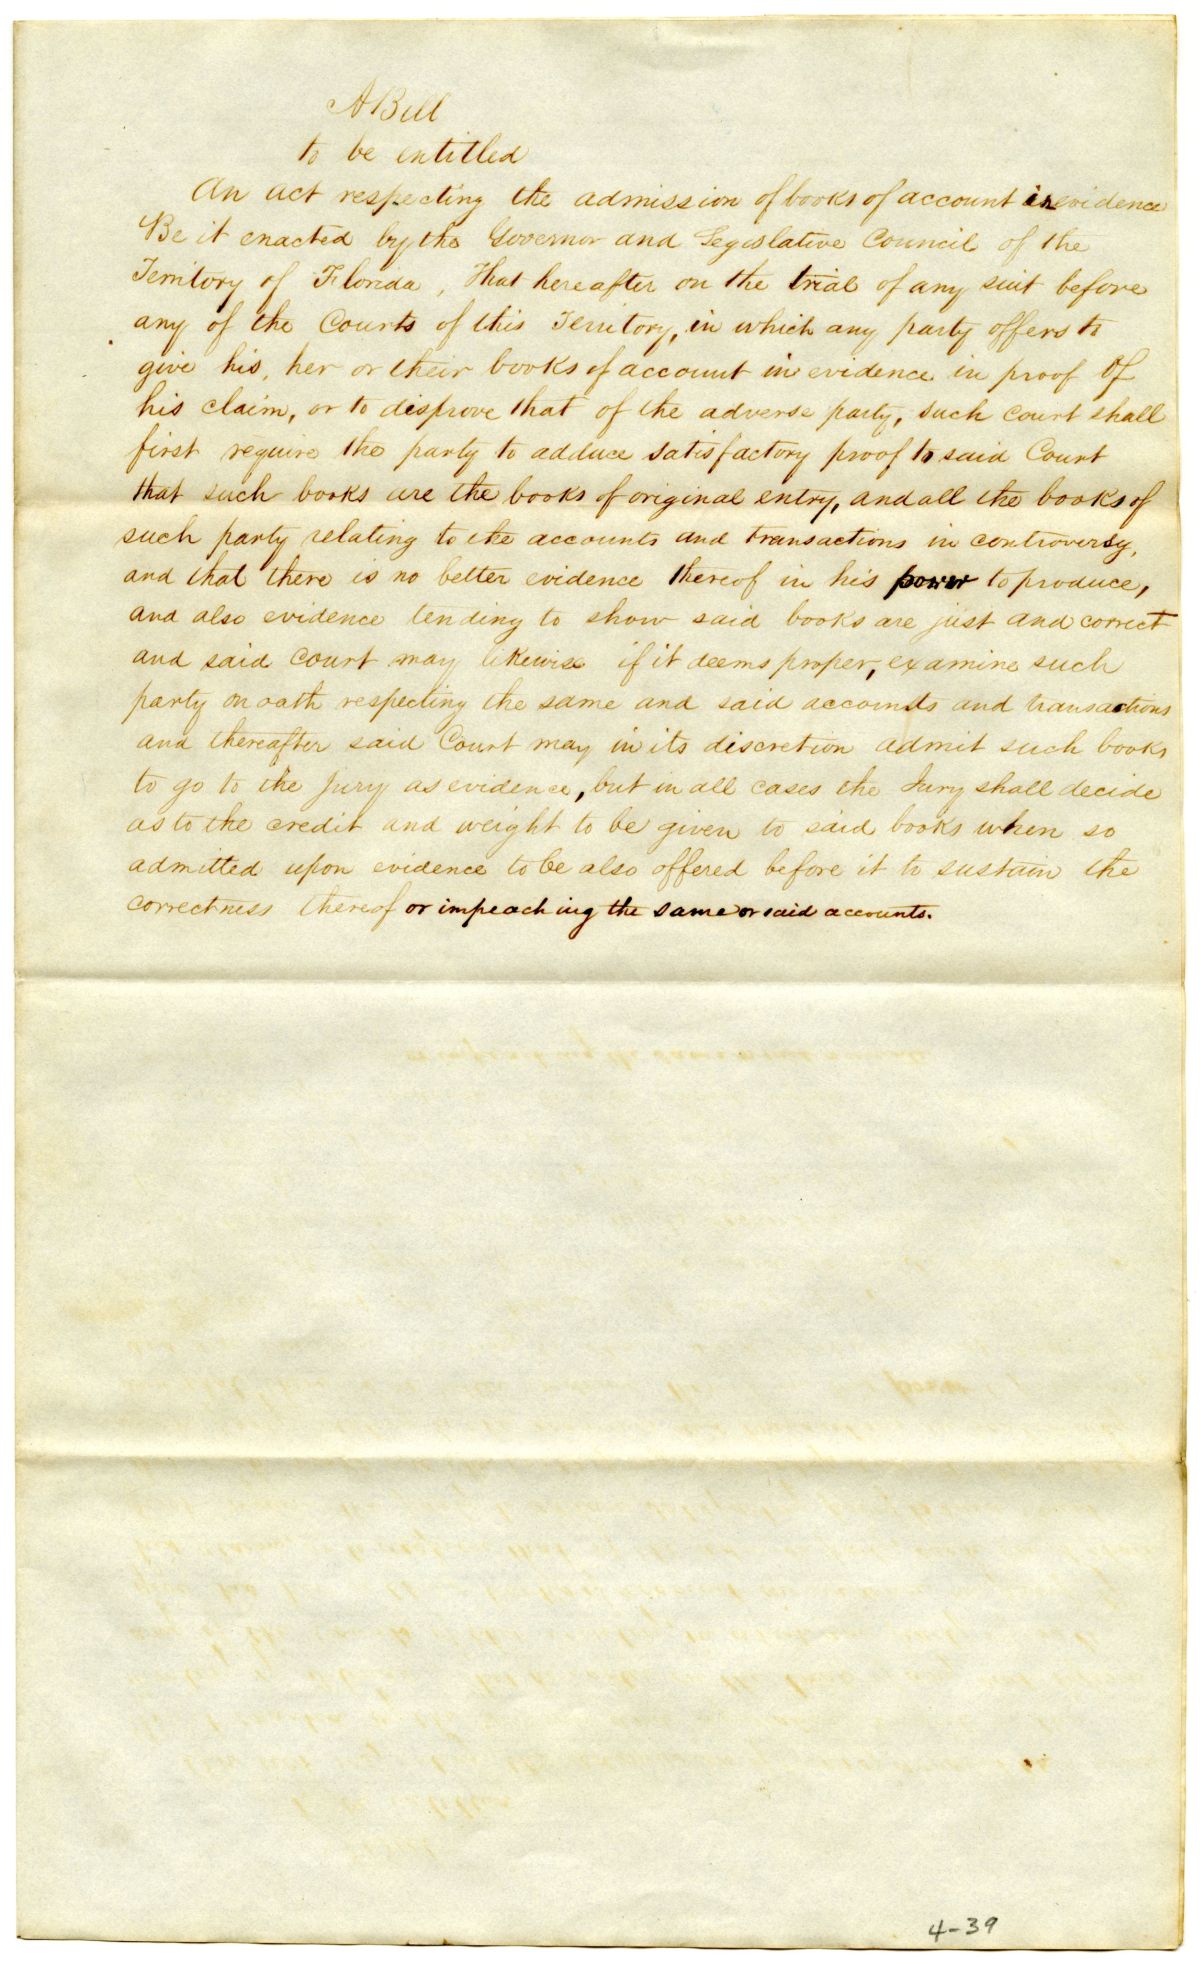 A Bill
to be entitled
An act respecting the admission of books of account in evidence
Be it enacted by the Governor and Legislative Council of the
Territory of Florida, That hereafter on the trial of any suit before
any of the Courts of this Territory, in which any party offers to
give his, her or their books of account in evidence in proof of
his claim, or to disprove that of the adverse party, such court shall
first require the party to adduce satisfactory proof to said Court
that such books are the books of original entry, and all the books of
such party relating to the accounts and transactions in controversy,
and that there is no better evidence thereof in his power to produce,
and also evidence tending to show said books are just and correct
and said Court may likewise if it deems proper, examine such
party on oath respecting the same and said accounts and transactions
and thereafter said Court may in its discretion admit such books
to go to the Jury as evidence, but in all cases the Jury shall decide
as to the credit and weight to be given to said books when so
admitted upon evidence to be also offered before it to sustain the
correctness thereof or impeaching the same or said accounts.
4-39